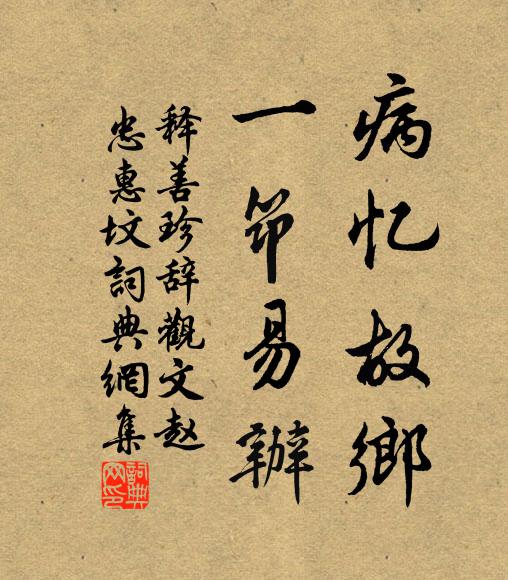 病忆故鄉
一筇易辦
释善珍辞觀文赵
忠惠坟詞典網集
詞典
网印